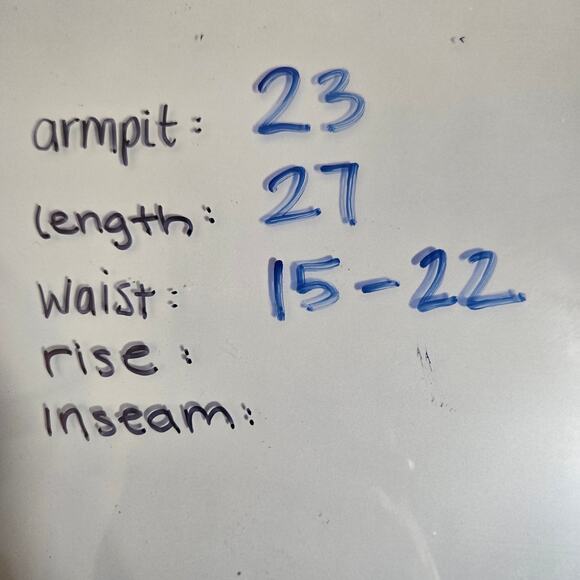 armpit: 23
length: 27
waist: 15-22
rise:
inseam: